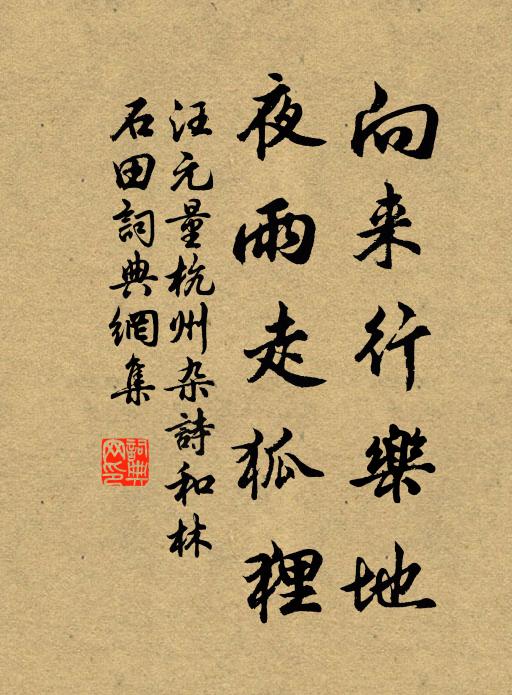 向来行樂地
夜雨走狐狸
汪元量杭州杂詩和林
石田詞典網集
詞典网印